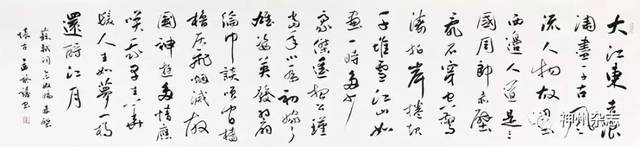 大江東去浪
淘盡千古風
流人物故壘
西邊人道是三
國周郎赤壁
亂石穿空驚
濤拍岸捲起
千堆雪江山如
畫一時多少
豪傑遙想公瑾
當年小喬初嫁了
雄姿英發羽扇
綸巾談笑間檣
櫓灰飛煙滅故
國神遊多情應
笑我早生華
髮人生如夢一樽
還酹江月
蘇軾詞念奴嬌赤壁
懷古
神州杂志